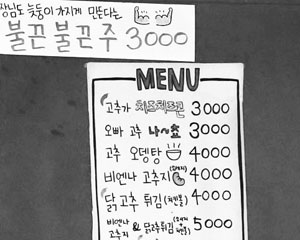 장님도 늦둥이 가지게 만든다는
불끈불끈주 3000
MENU
고추가 치즈치즈곤 3000
오빠 고추 나~쵸 3000
고추 오뎅탕 4000
비엔나 고추지 4000
닭고추 튀김 4000
비엔나 고추지 & 닭고추튀김 5000